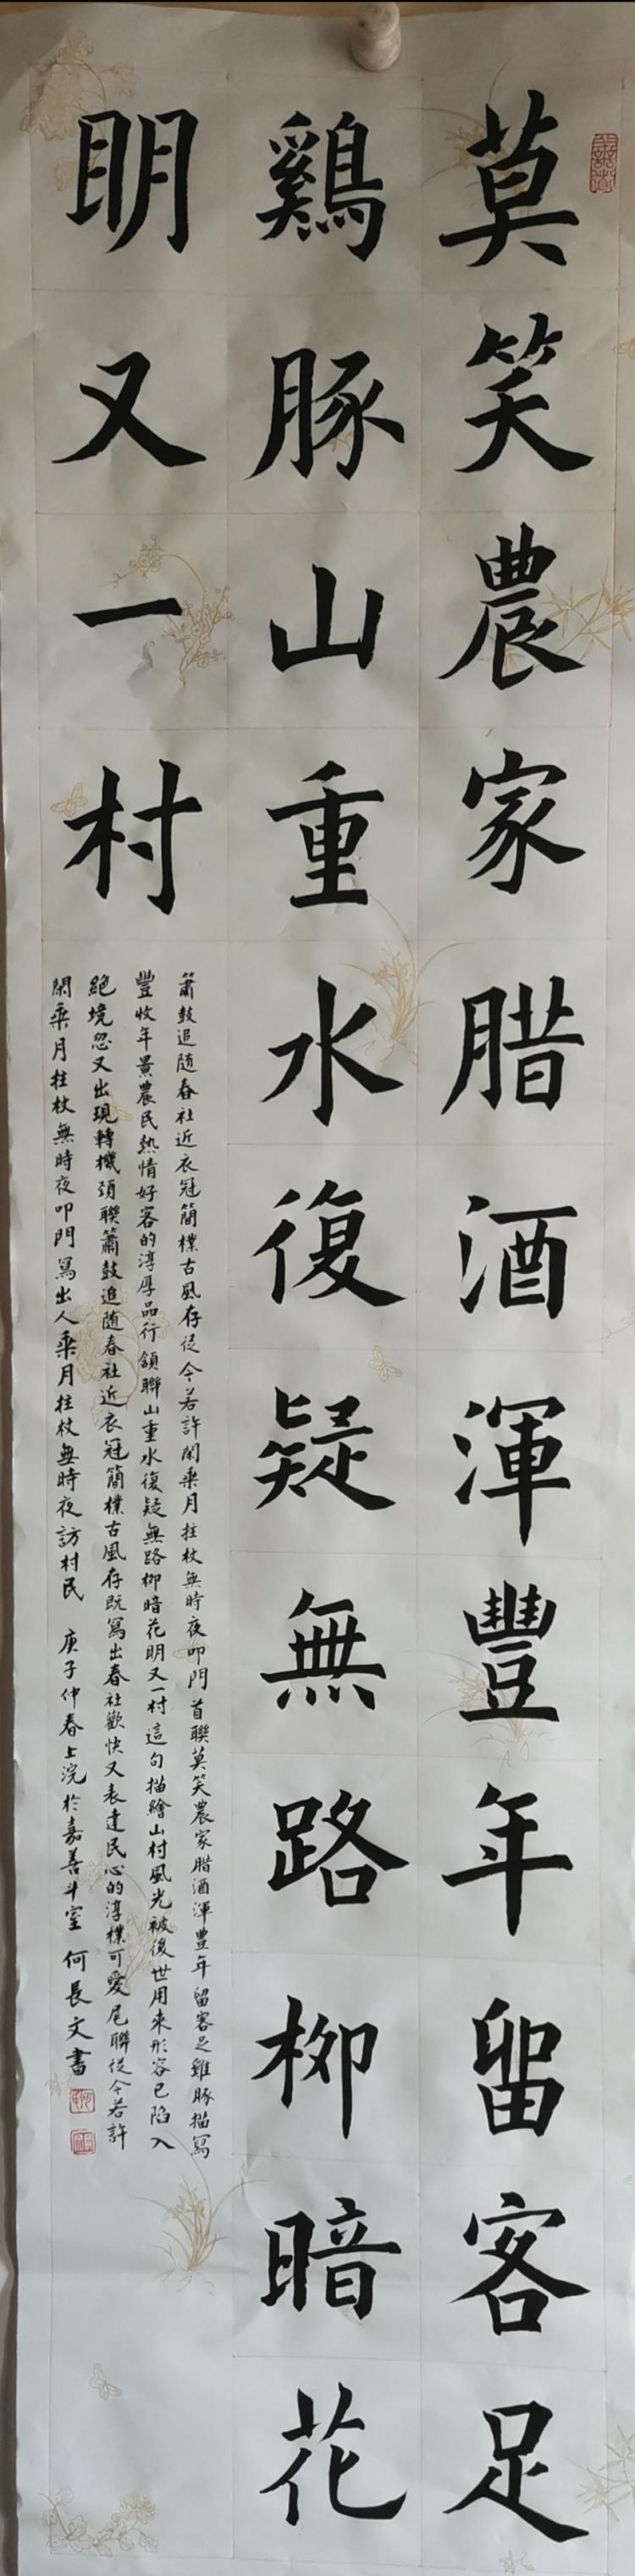 莫笑農家腊酒渾豐年留客足
鷄豚山重水復疑無路柳暗花
明又一村
簫鼓追随春社近衣冠簡樸古風存從今若許閑乘月拄杖無時夜叩門首聯莫笑農家腊酒渾豐年留客足雞豚描寫
豐收年景農民熱情好客的淳厚品行頷聯山重水復疑無路柳暗花明又一村這句描繪山村風光被後世用來形容已陷入
絕境忽又出現轉機頸聯簫鼓追随春社近衣冠簡樸古風存既寫出春社歡快又表達民心的淳樸可愛尾聯從今若許
閑乘月拄杖無時夜叩門寫出人乘月拄杖無時夜訪村民 庚子仲春上浣於嘉善斗室 何長文書